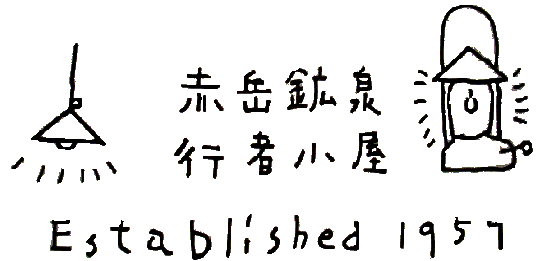 赤岳鉱泉
行者小屋
Established 1957